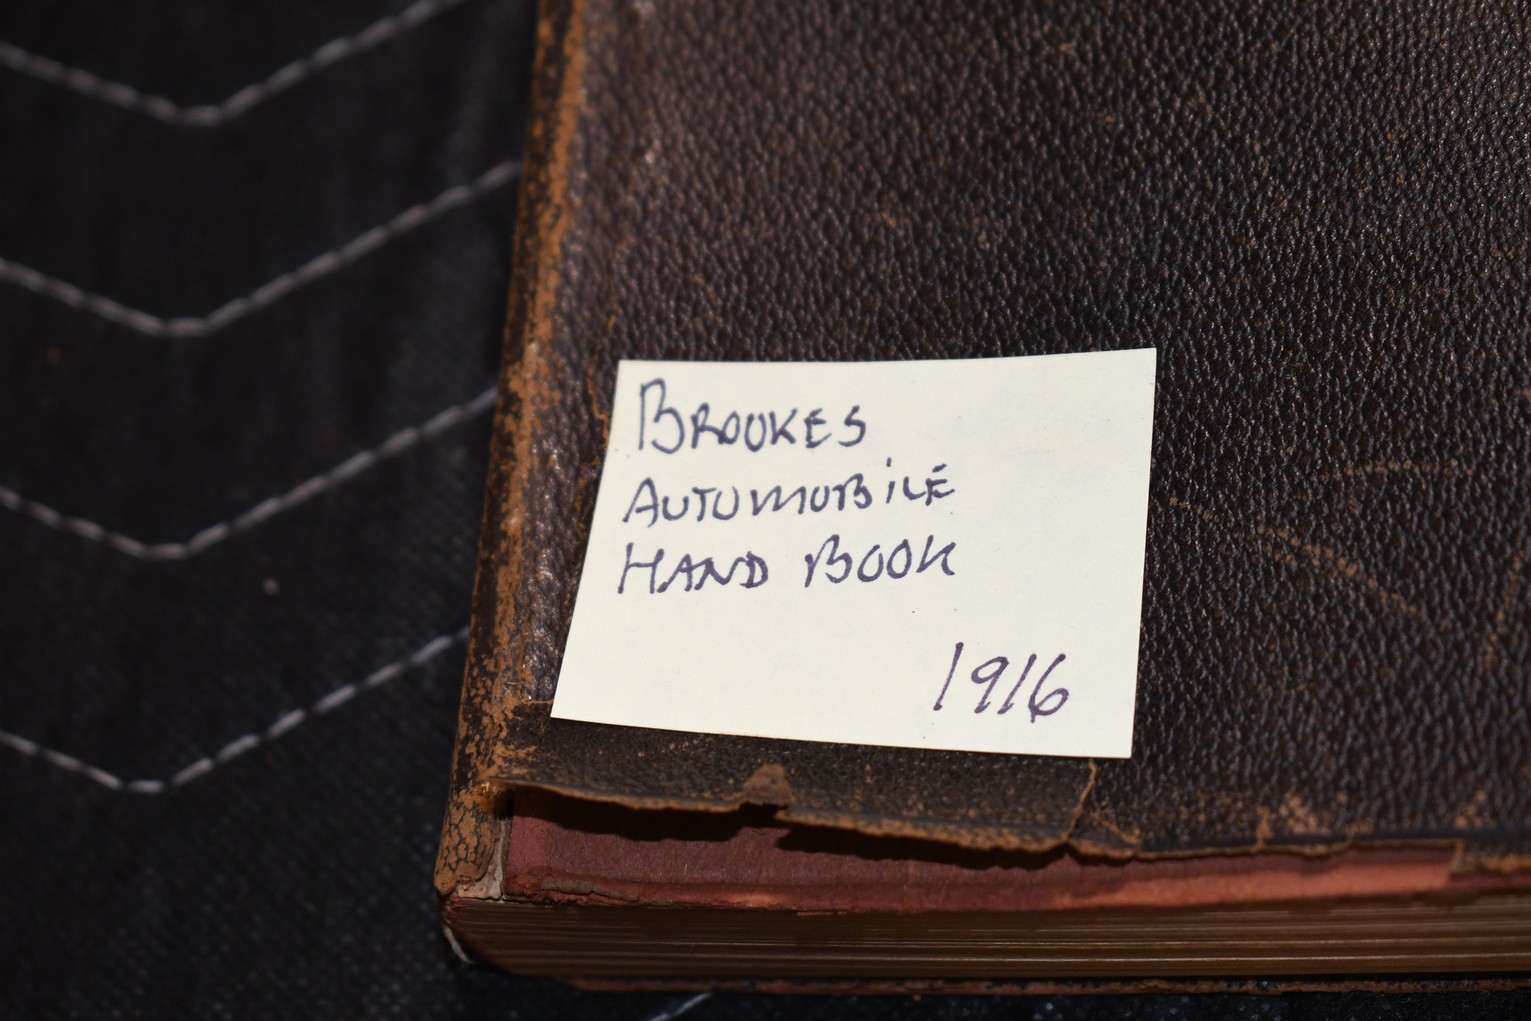 BROOKES
AUTOMOBiLE
HAND BOOK
1916